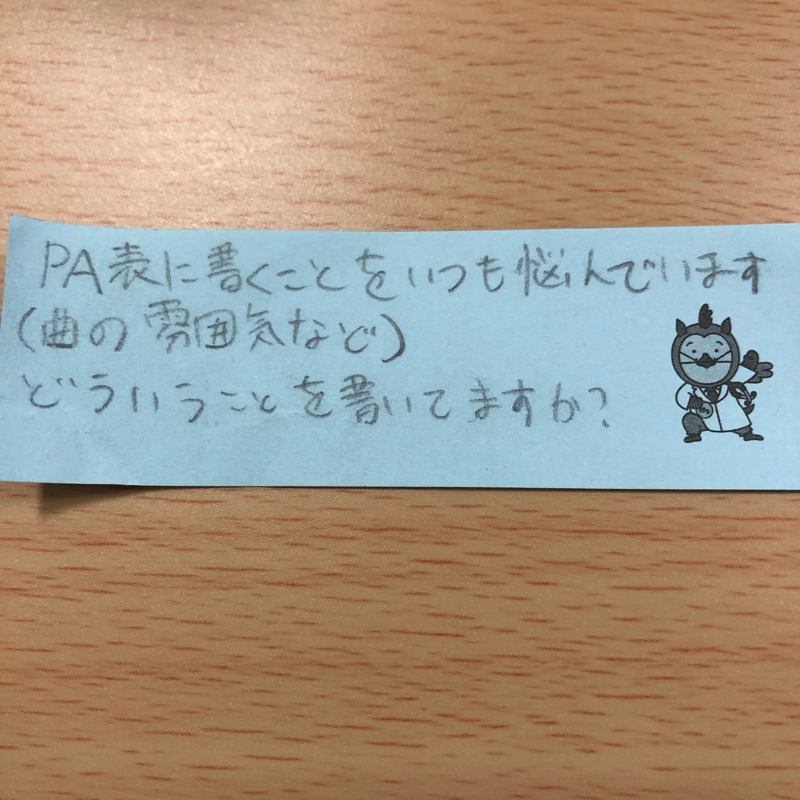 PA表に書くことをいつも悩んでいます
(曲の雰囲気など)
どういうことを書いてますか?